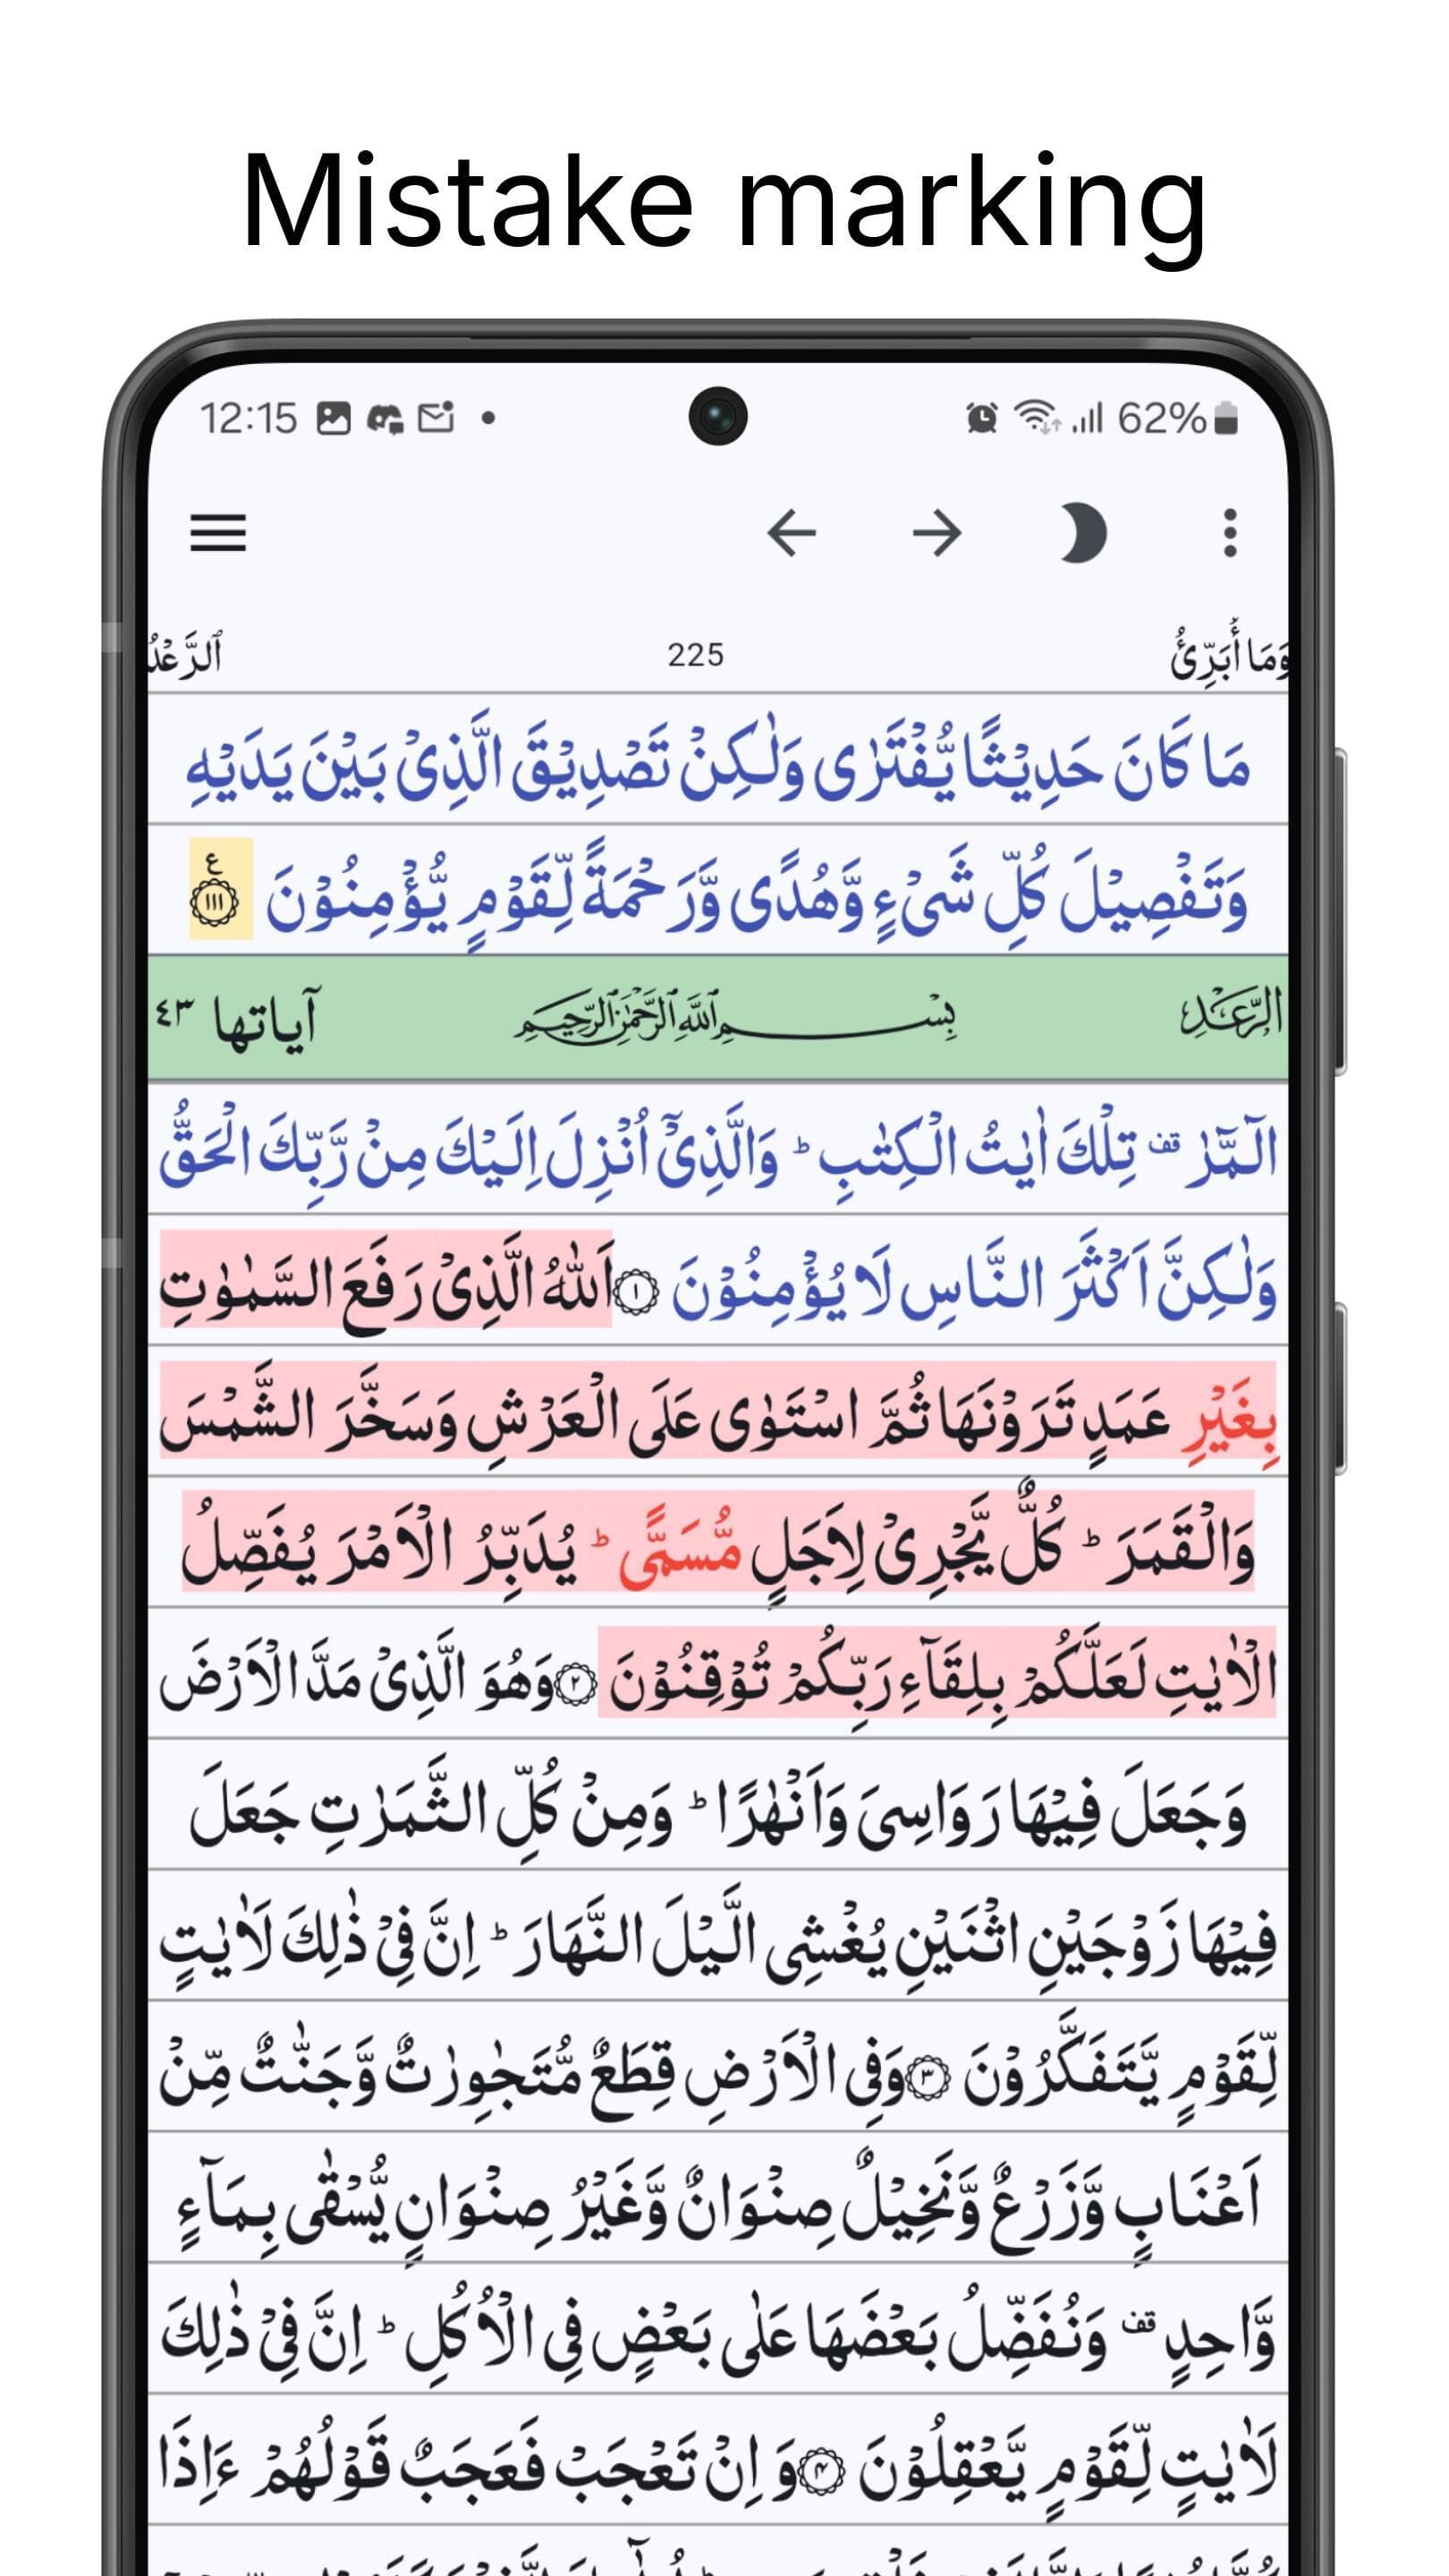 Mistake marking
12:15 62%
وَمَا أُبَرِّئُ 225 ٱلرَّعْدُ
مَا كَانَ حَدِيْثًا يُّفْتَرٰى وَلٰكِنْ تَصْدِيْقَ الَّذِىْ بَيْنَ يَدَيْهِ
وَتَفْصِيْلَ كُلِّ شَىْءٍ وَّهُدًى وَّرَحْمَةً لِّقَوْمٍ يُّؤْمِنُوْنَ ع ١١١
الرَّعْد بِسْمِ اللَّهِ الرَّحْمَٰنِ الرَّحِيمِ آياتها ٤٣
الٓمّٓرٰ قف تِلْكَ اٰيٰتُ الْكِتٰبِ ؕ وَالَّذِىْۤ اُنْزِلَ اِلَيْكَ مِنْ رَّبِّكَ الْحَقُّ
وَلٰكِنَّ اَكْثَرَ النَّاسِ لَا يُؤْمِنُوْنَ ١ اَللّٰهُ الَّذِىْ رَفَعَ السَّمٰوٰتِ
بِغَيْرِ عَمَدٍ تَرَوْنَهَا ثُمَّ اسْتَوٰى عَلَى الْعَرْشِ وَسَخَّرَ الشَّمْسَ
وَالْقَمَرَ ؕ كُلٌّ يَّجْرِىْ لِاَجَلٍ مُّسَمًّى ؕ يُدَبِّرُ الْاَمْرَ يُفَصِّلُ
الْاٰيٰتِ لَعَلَّكُمْ بِلِقَآءِ رَبِّكُمْ تُوْقِنُوْنَ ٢ وَهُوَ الَّذِىْ مَدَّ الْاَرْضَ
وَجَعَلَ فِيْهَا رَوَاسِىَ وَاَنْهٰرًا ؕ وَمِنْ كُلِّ الثَّمَرٰتِ جَعَلَ
فِيْهَا زَوْجَيْنِ اثْنَيْنِ يُغْشِى الَّيْلَ النَّهَارَ ؕ اِنَّ فِىْ ذٰلِكَ لَاٰيٰتٍ
لِّقَوْمٍ يَّتَفَكَّرُوْنَ ٣ وَفِى الْاَرْضِ قِطَعٌ مُّتَجٰوِرٰتٌ وَّجَنّٰتٌ مِّنْ
اَعْنَابٍ وَّزَرْعٌ وَّنَخِيْلٌ صِنْوَانٌ وَّغَيْرُ صِنْوَانٍ يُّسْقٰى بِمَآءٍ
وَّاحِدٍ قف وَنُفَضِّلُ بَعْضَهَا عَلٰى بَعْضٍ فِى الْاُكُلِ ؕ اِنَّ فِىْ ذٰلِكَ
لَاٰيٰتٍ لِّقَوْمٍ يَّعْقِلُوْنَ ۴ وَ اِنْ تَعْجَبْ فَعَجَبٌ قَوْلُهُمْ ءَاِذَا